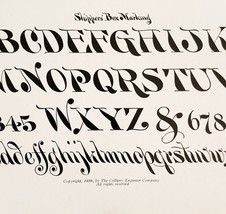 Shippers' Box Marking
ABCDEFGHIJK
MNOPQRSTUV
345 WXYZ & 678
abcdeffghijklmnopqrstuvw
Copyright, 1899, by The Colliery Engineer Company.
All rights reserved.